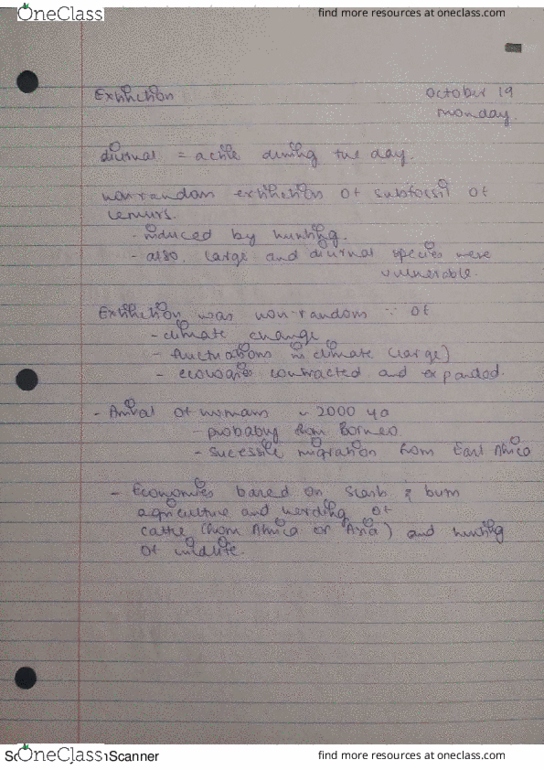 OneClass find more resources at oneclass.com
Extinction October 19
monday
diurnal = active during the day.
non-random extinction of subfossil of
lemurs.
- induced by hunting.
- also, large and diurnal species were
vulnerable.
Extinction was non-random ∵ of
- climate change
- fluctuations in climate (large)
- ecologies contracted and expanded.
- Arrival of humans ~ 2000 ya
- probably from Borneo
- sucessive migration from East Africa
- Economies based on slash & burn
agriculture and herding of
cattle (from Africa or Asia) and hunting
of wildlife.
OneClass Scanner find more resources at oneclass.com